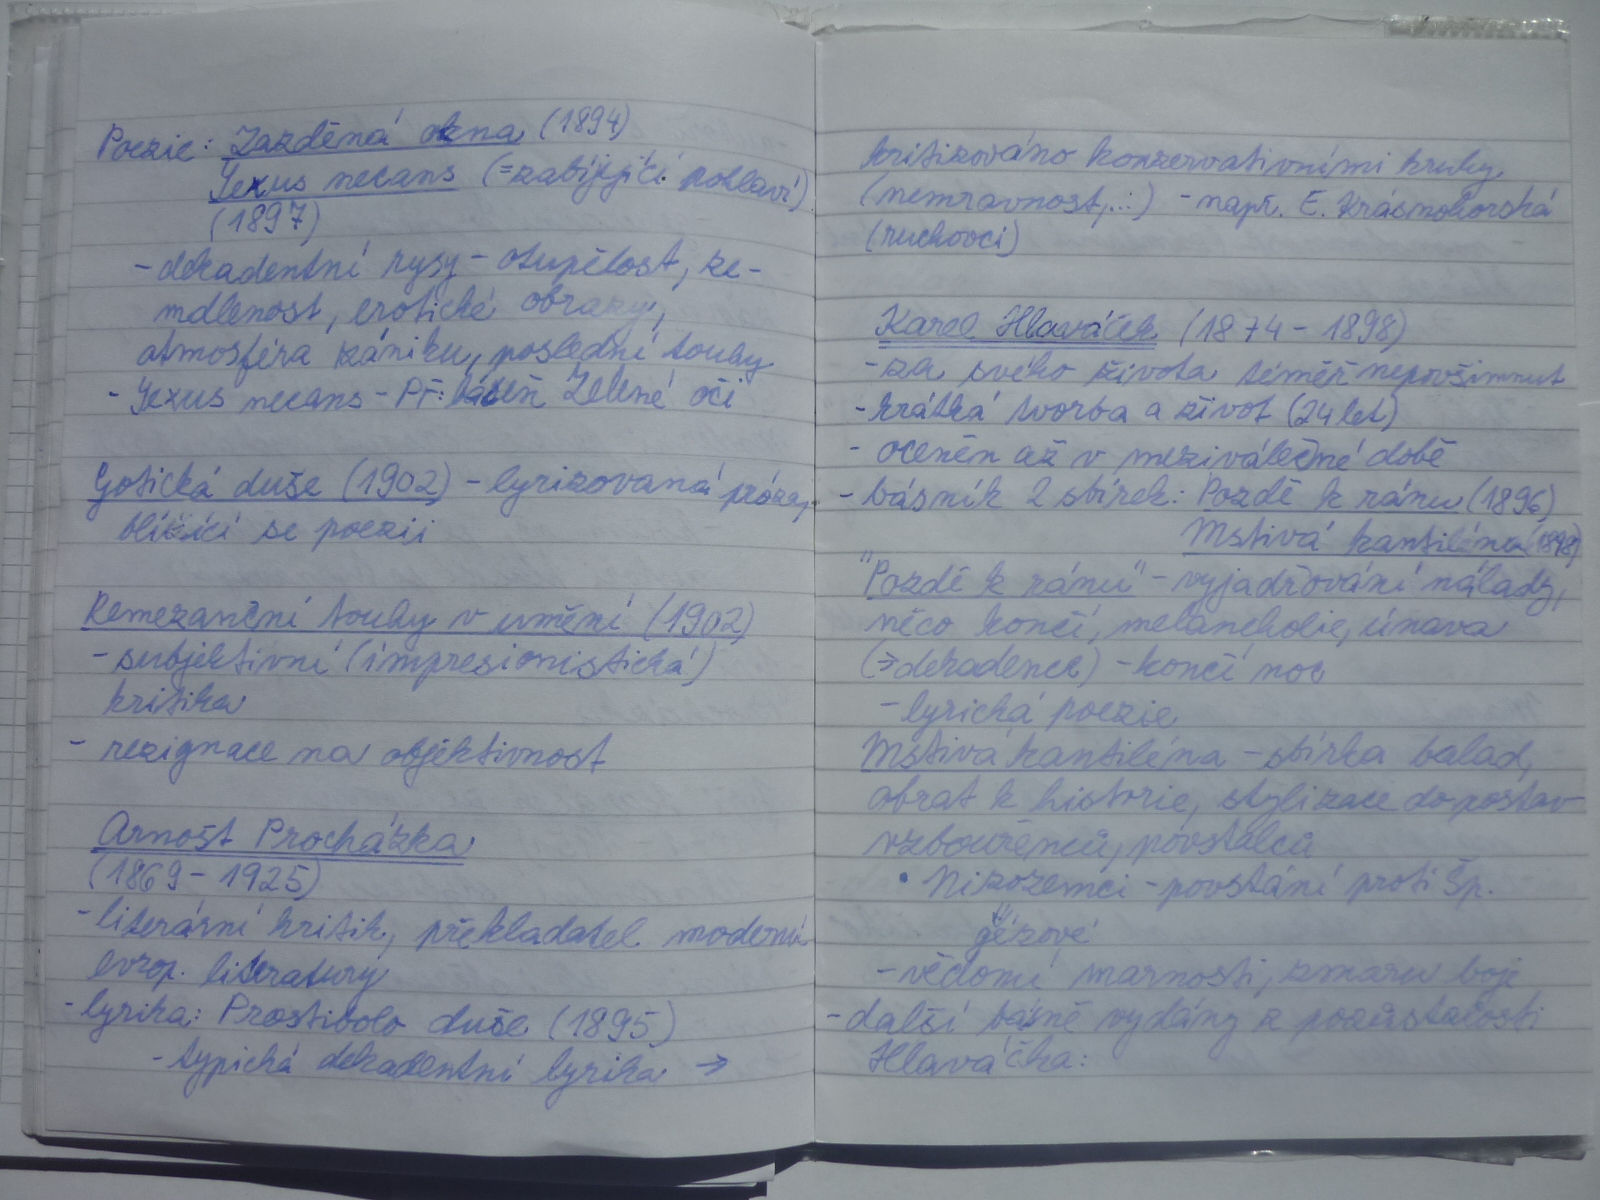 Poezie: Zazděná okna (1894)
Sexus necans (=zabíjející pohlaví)
(1897)
- dekadentní rysy - otupělost, ze-
mdlenost, erotické obrazy,
atmosféra zániku, poslední touhy
- Sexus necans - Př: báseň Zelené oči
Gotická duše (1902) - lyrizovaná próza,
blížící se poezii
Renezanční touhy v umění (1902)
- subjektivní (impresionistická)
kritika
- rezignace na objektivnost
Arnošt Procházka
(1869 - 1925)
- literární kritik, překladatel moderní
evrop. literatury
- lyrika: Prostibolo duše (1895)
- typická dekadentní lyrika →
kritizováno konzervativními kruhy
(nemravnost,...) - např. E. Krásnohorská
(ruchovci)
Karel Hlaváček (1874 - 1898)
- za svého života téměř nepovšimnut
- krátká tvorba a život (24 let)
- oceněn až v meziválečné době
- básník 2 sbírek: Pozdě k ránu (1896)
Mstivá kantiléna (1898)
"Pozdě k ránu" - vyjadřování nálady,
něco končí, melancholie, únava
(→ dekadence) - končí noc
- lyrická poezie
Mstivá kantiléna - sbírka balad,
obrat k historie, stylizace do postav
vzbouřenců, povstalců
• Nizozemci - povstání proti Šp.
gézové
- vědomí marnosti, zmaru boje
- další básně vydány z pozůstalosti
Hlaváčka: